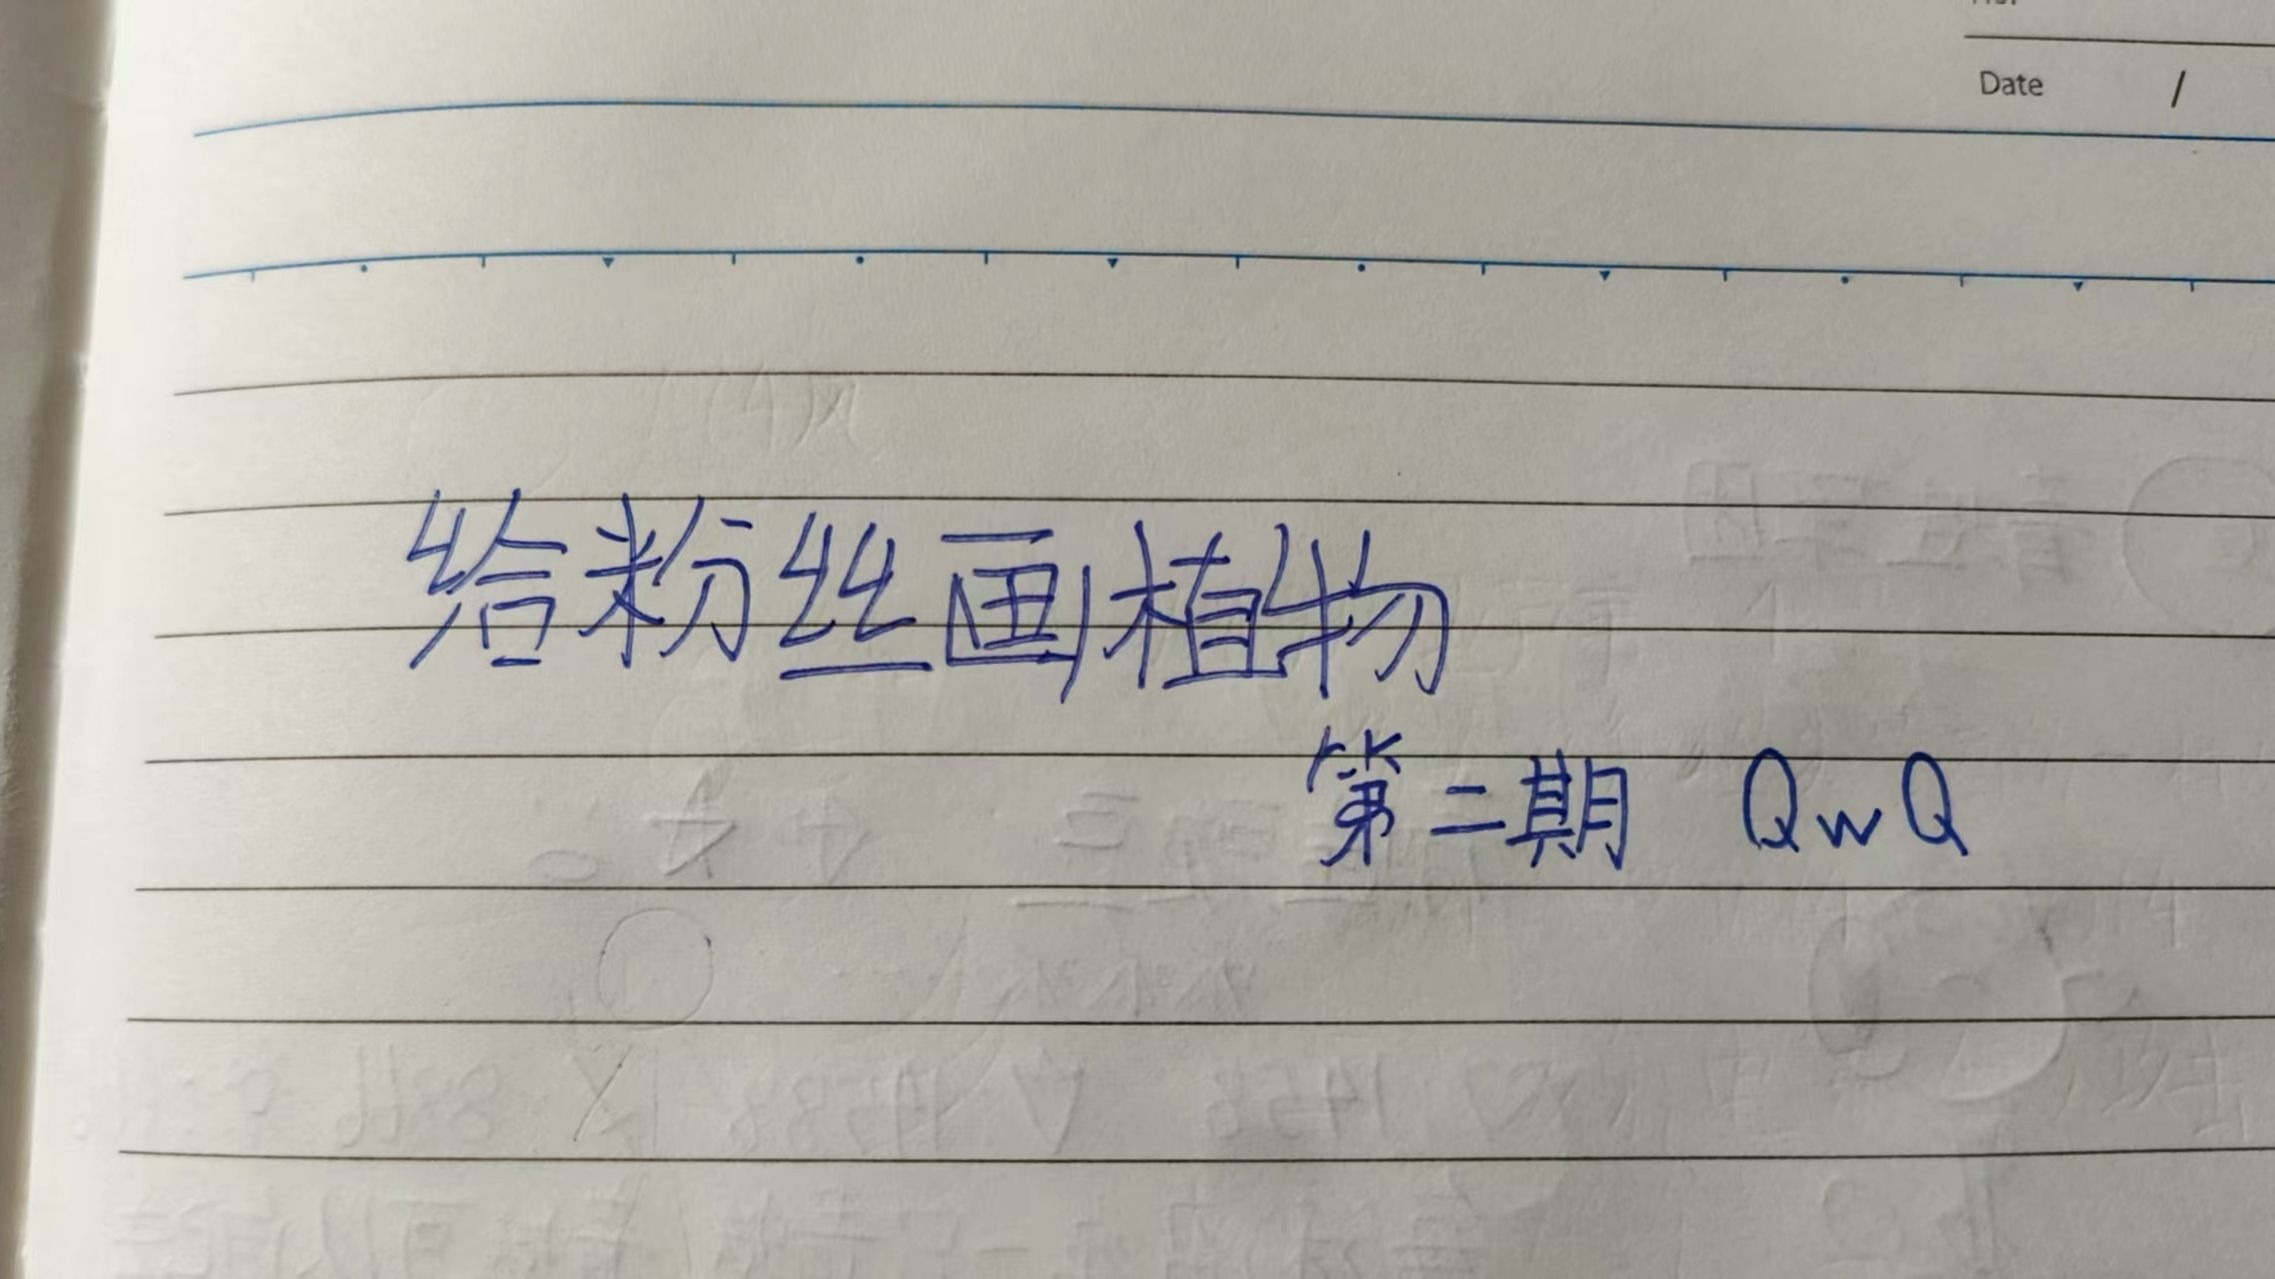 Date /
给粉丝画植物
第二期 QwQ